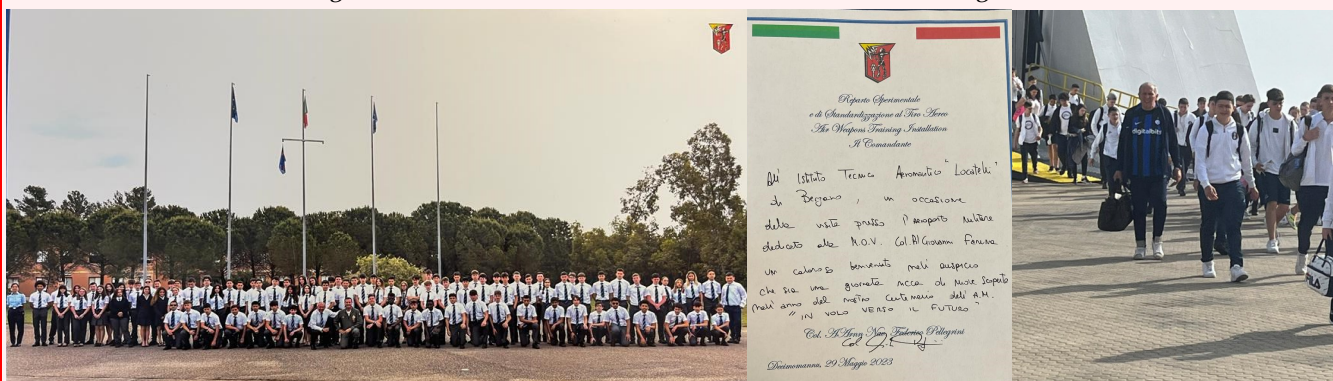 Reparto Sperimentale
e di Standardizzazione al Tiro Aereo
Air Weapons Training Installation
Il Comandante
All' Istituto Tecnico Aeronautico "Locatelli"
di Bergamo, in occasione
della visita presso l'aeroporto militare
dedicato alla M.O.V. Col. Pil Giovanni Farina
un caloroso benvenuto nell' auspicio
che sia una giornata ricca di nuove scoperte
nell'anno del nostro Centenario dell' A.M.
"IN VOLO VERSO IL FUTURO"
Col. A.A.r.n.n. Nav. Federico Pellegrini
Decimomannu, 29 Maggio 2023
digitalbits
FILA